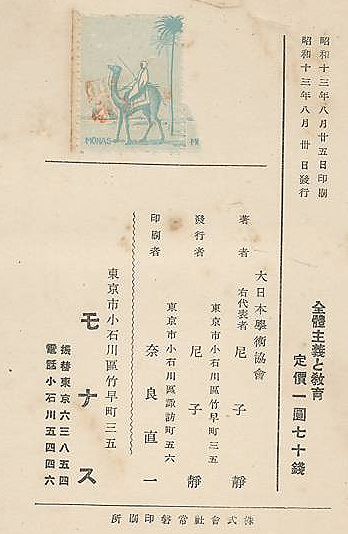 昭和十三年八月廿五日印刷
昭和十三年八月卅日發行
全體主義と教育
定價一圓七十錢
大日本學術協會
著者 右代表者 尼子靜
東京市小石川區竹早町三五
發行者 尼子靜
東京市小石川區諏訪町五六
印刷者 奈良直一
東京市小石川區竹早町三五
モナス
振替東京六三八五四
電話小石川五四四六
株式會社常磐印刷所
MONAS